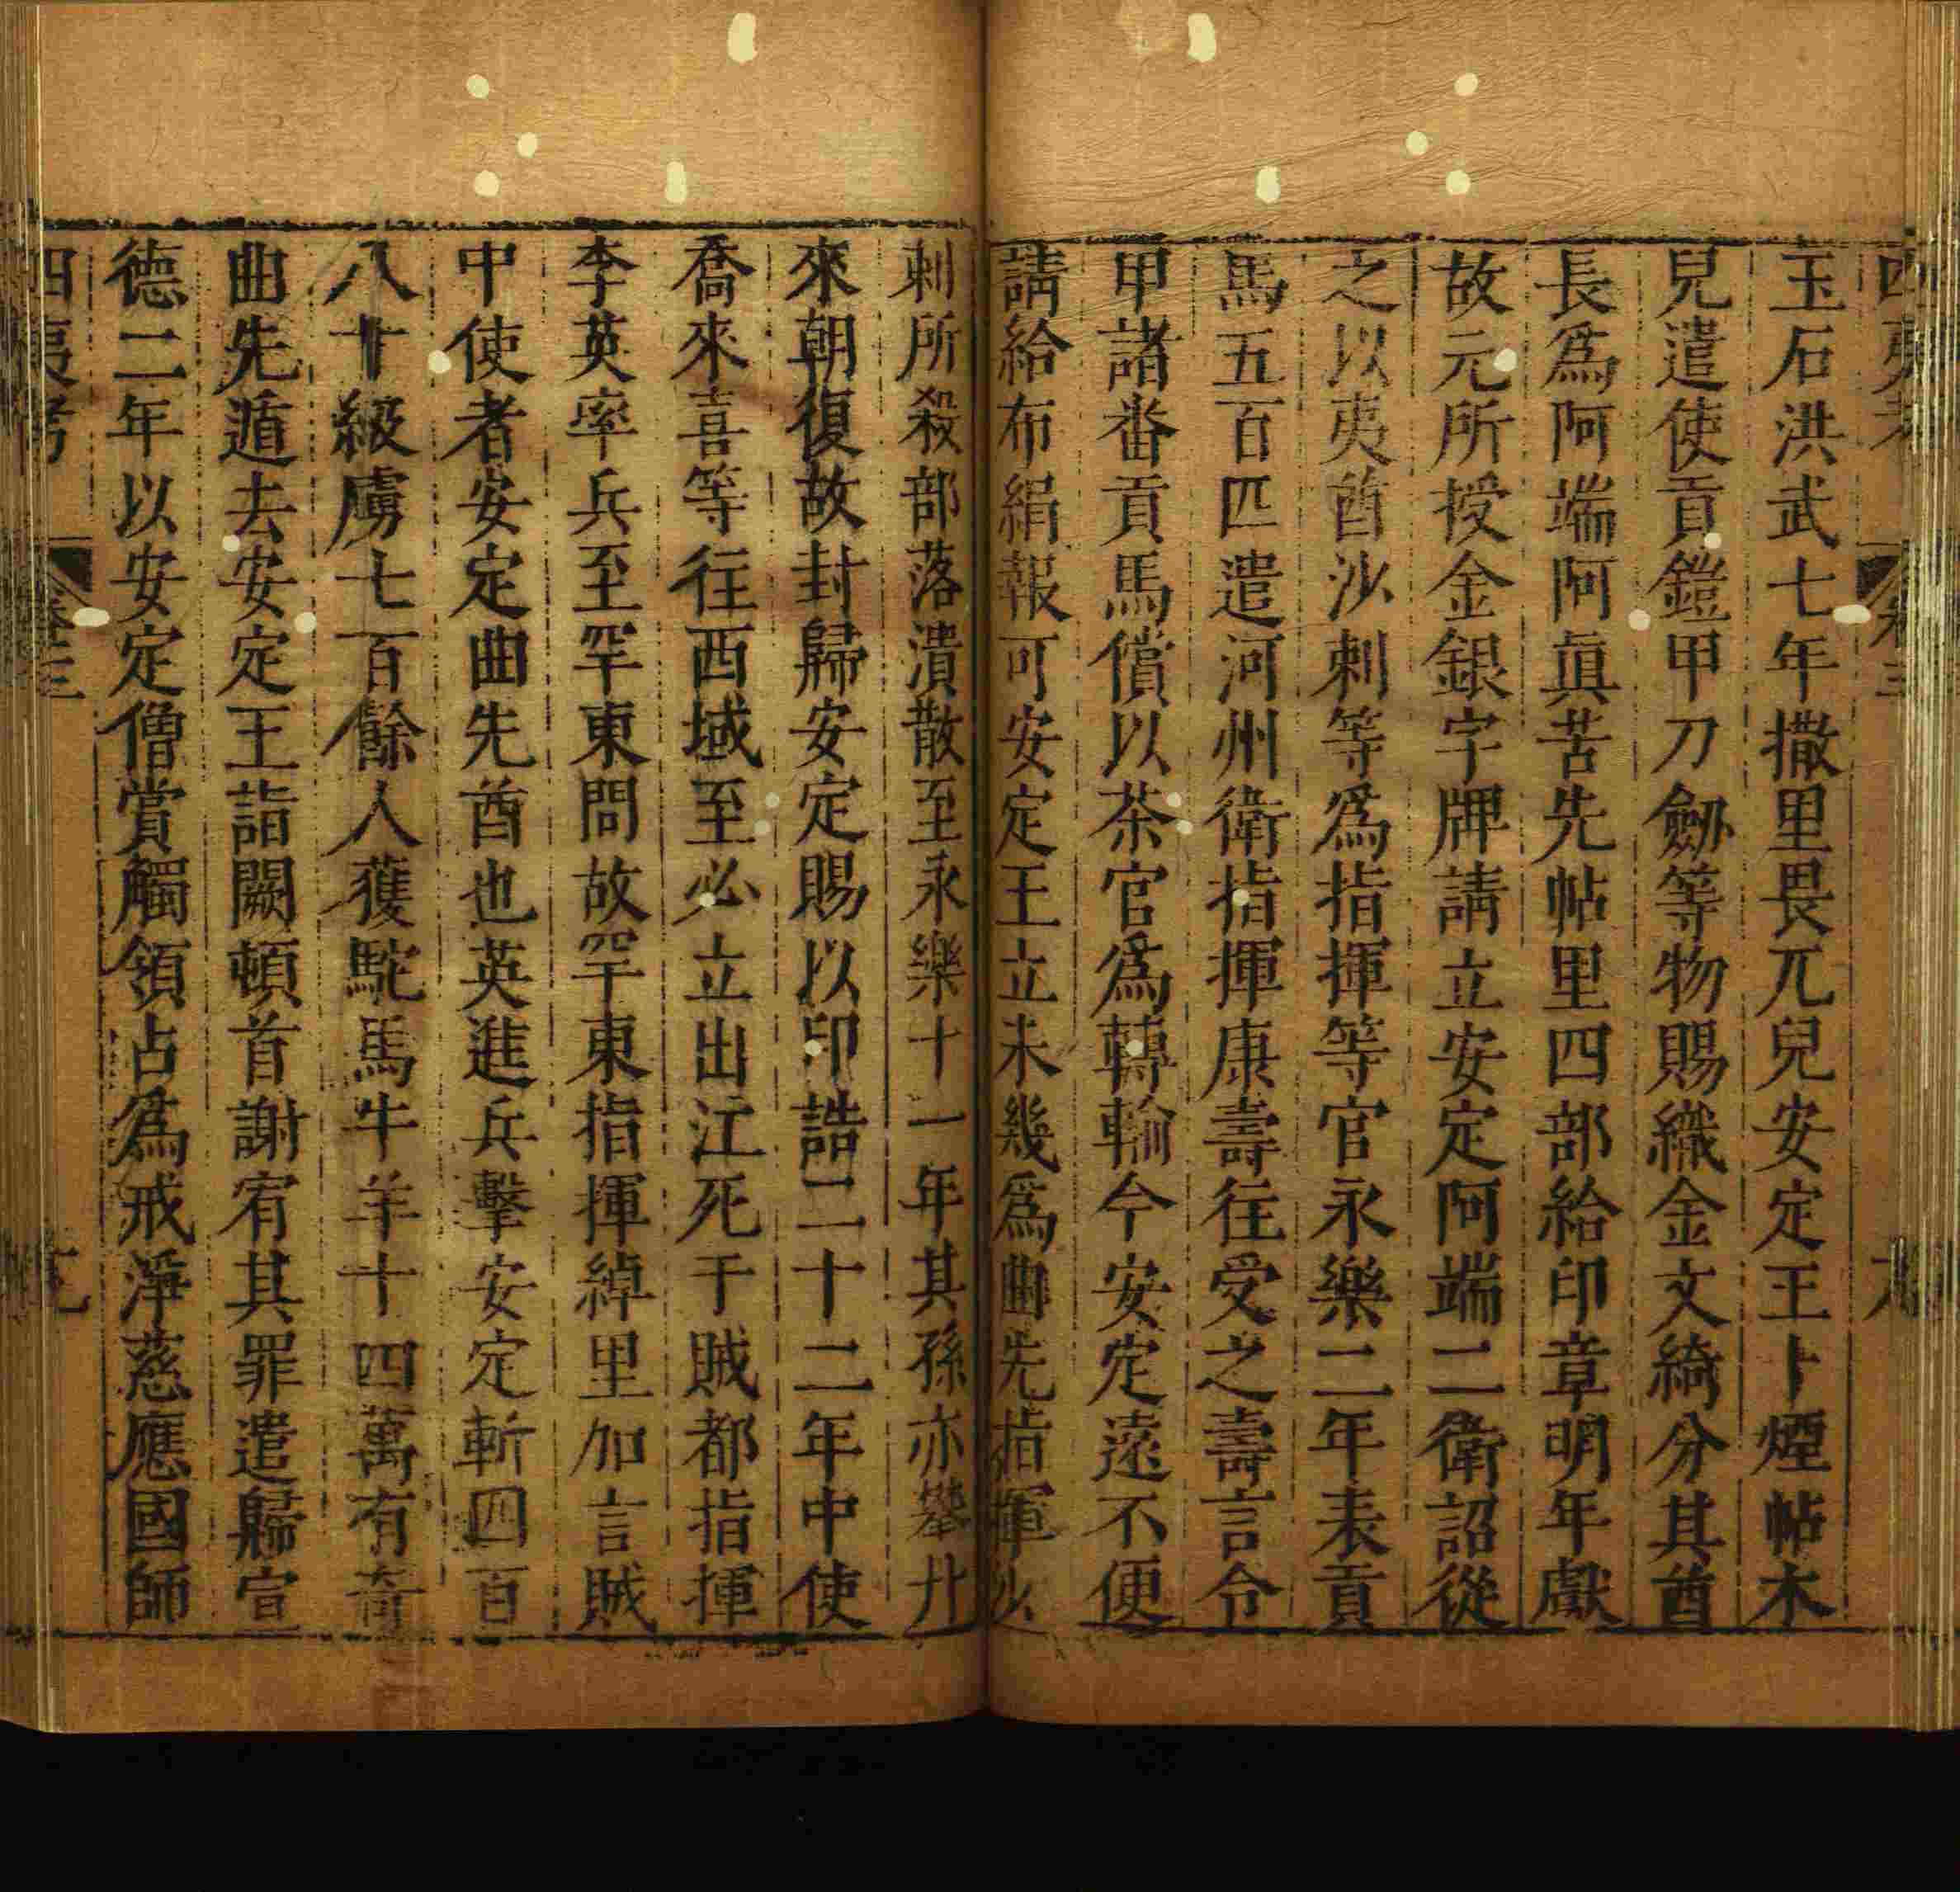 玉石洪武七年撒里畏兀兒安定王卜煙帖木
兒遣使貢鎧甲刀劒等物賜織金文綺分其酋
長爲阿端阿眞苦先帖里四部給印章明年獻
故元所授金銀字牌請立安定阿端二衛詔從
之以夷酋沙剌等爲指揮等官永樂二年表貢
馬五百匹遣河州衛指揮康壽往受之壽言令
甲諸畨貢馬償以茶官爲轉輸今安定遠不便
請給布絹報可安定王立未幾爲曲先指揮沙
剌所殺部落潰散至永樂十一年其孫亦攀丹
來朝復故封歸安定賜以印誥二十二年中使
喬來喜等往西域至必立出江死于賊都指揮
李英率兵至罕東問故罕東指揮綽里加言賊
中使者安定曲先酋也英進兵擊安定斬四百
八十級虜七百餘人獲駝馬牛羊十四萬有奇
曲先遁去安定王詣闕頓首謝宥其罪遣歸宣
德二年以安定僧賞觸領占爲戒淨慈應國師
四夷考 卷三